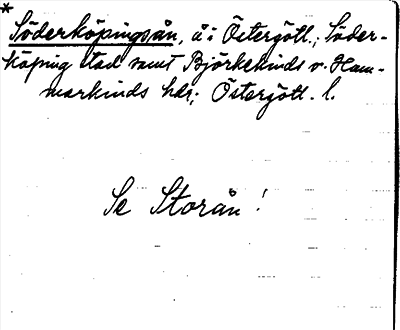 * Söderköpingsån, å i Östergötl.; Söder-
köping stad samt Björkekinds o. Ham-
markinds hdr; Östergötl. l.
Se Storån!